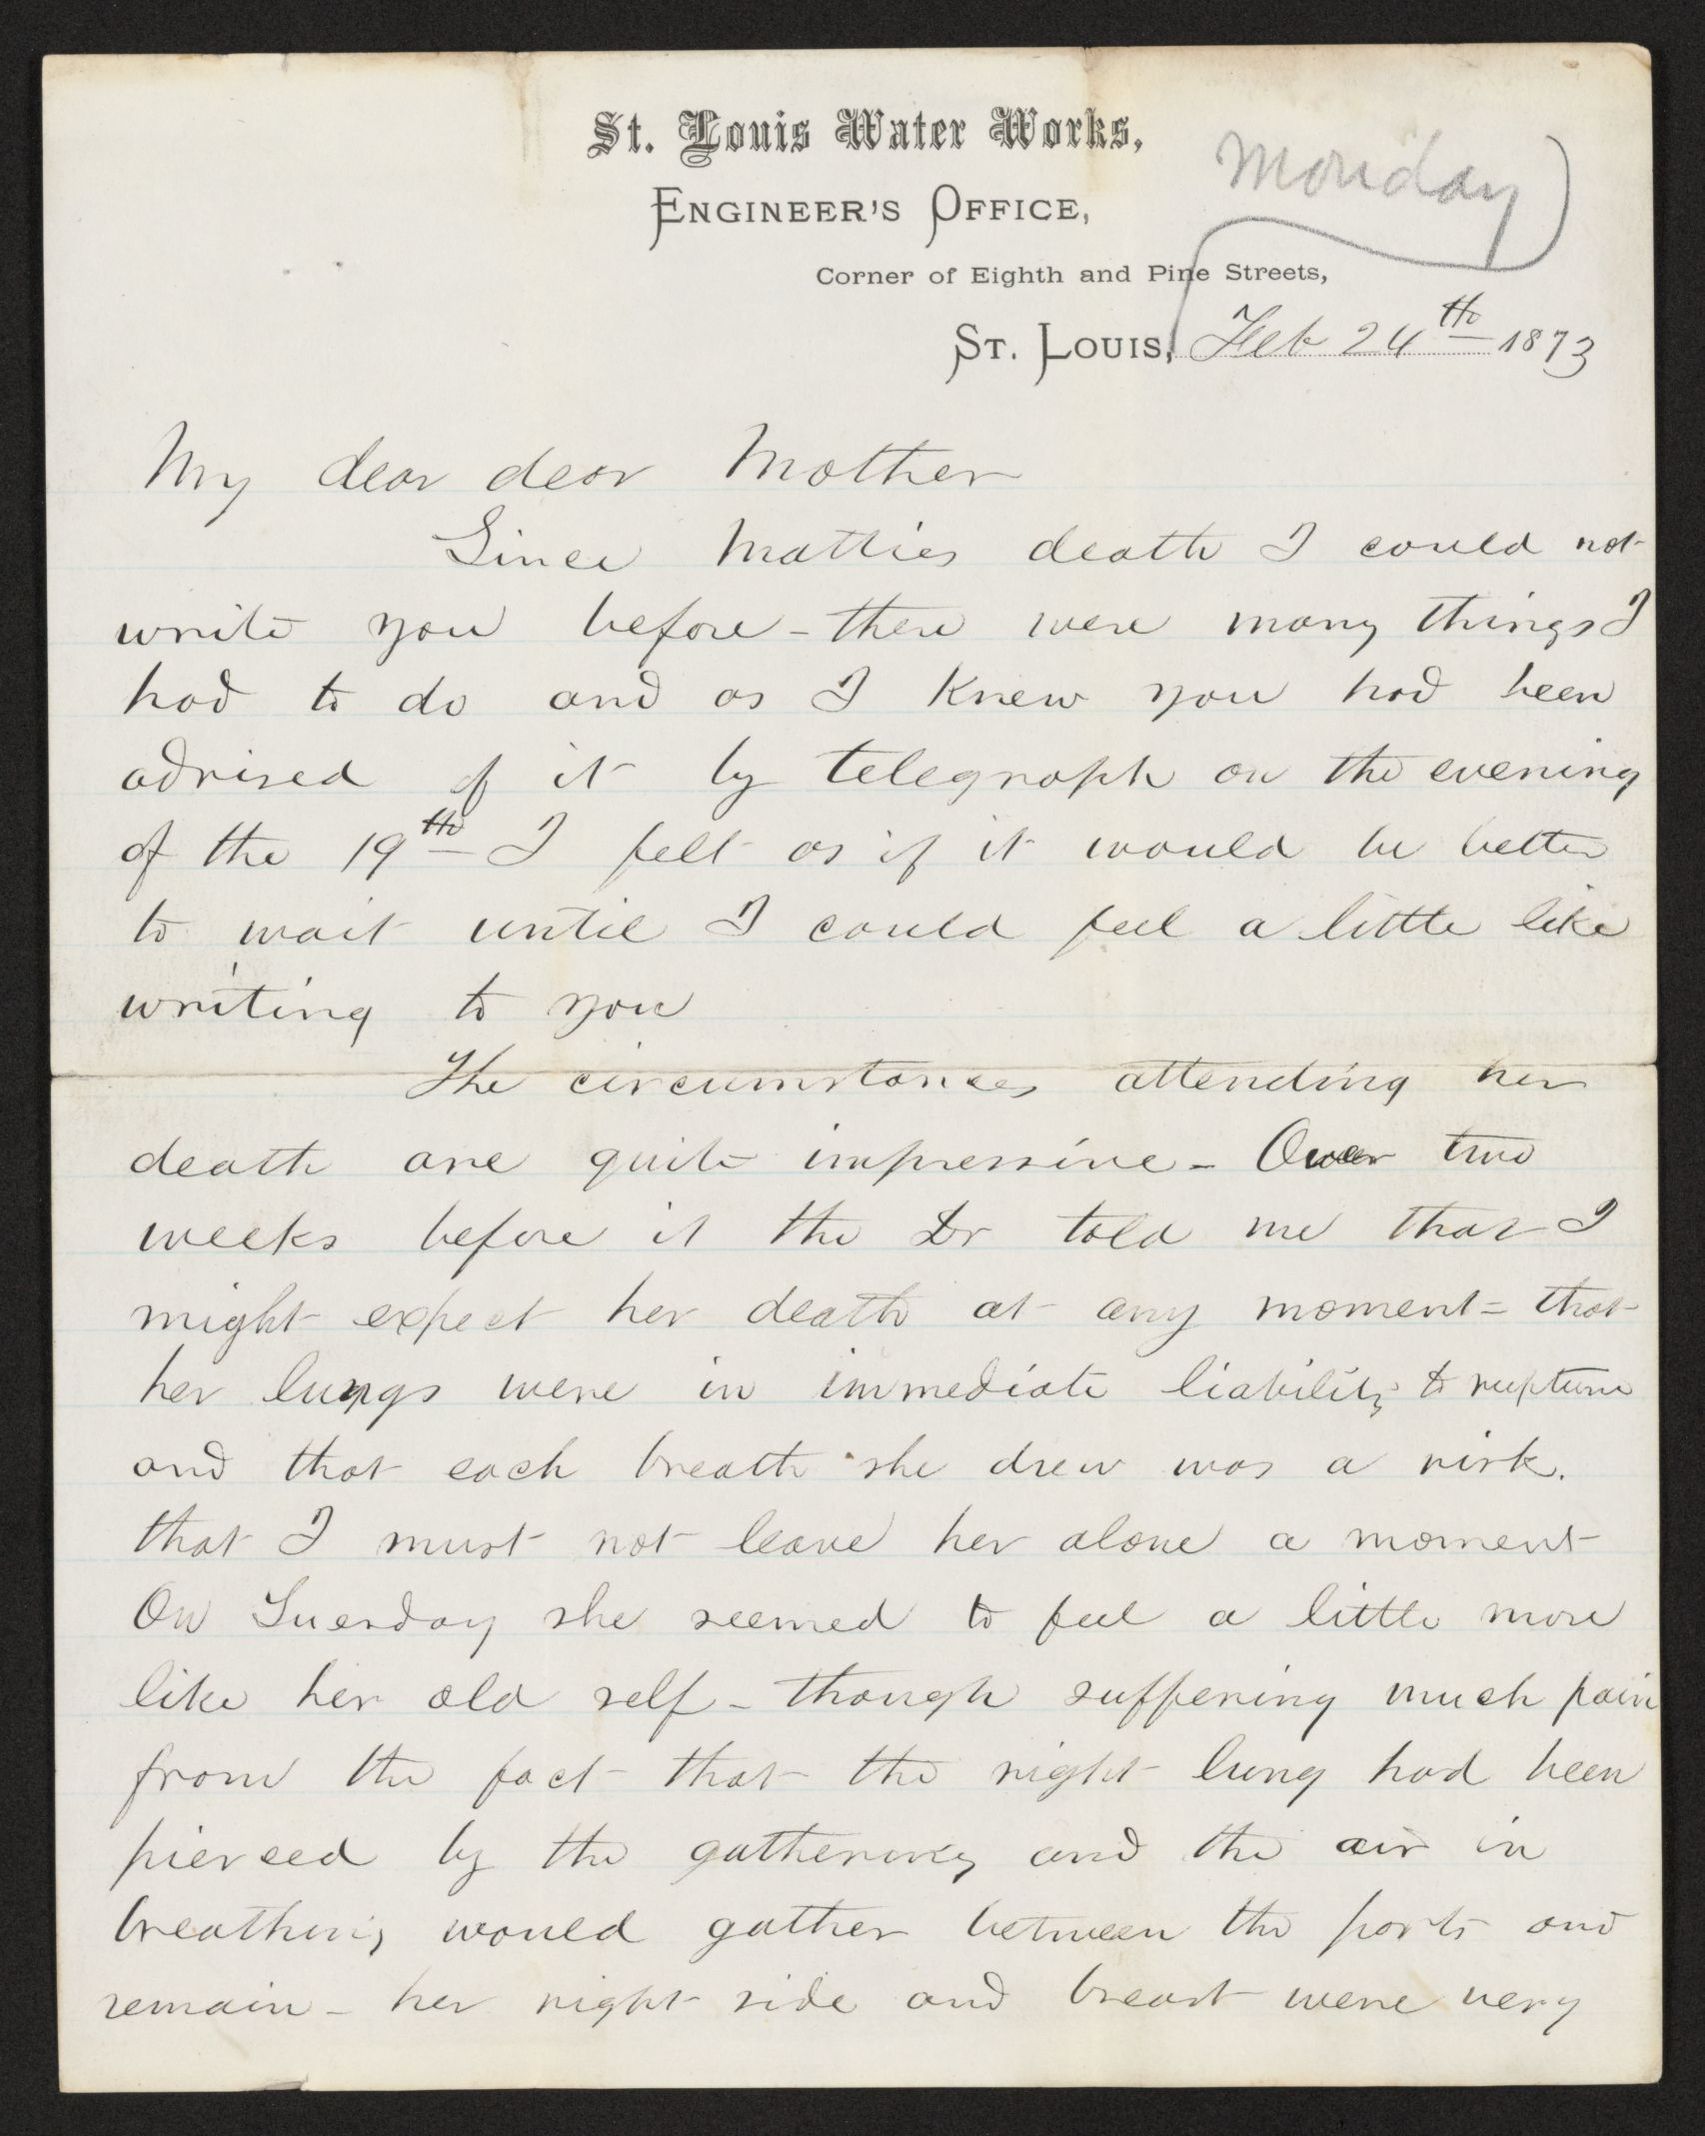 St. Louis Water Works,
Monday
ENGINEER'S OFFICE,
Corner of Eighth and Pine Streets,
ST. LOUIS, Feb 24th 1873
My dear dear Mother
Since Matties death I could not
write you before - there were many things I
had to do and as I knew you had been
advised of it by telegraph on the evening
of the 19th I felt as if it would be better
to wait until I could feel a little like
writing to you
The circumstances attending her
death are quite impressive - Over two
weeks before it the Dr told me that I
might expect her death at any moment = that
her lungs were in immediate liability to rupture
and that each breath she drew was a risk.
that I must not leave her alone a moment
On Tuesday she seemed to feel a little more
like her old self - though suffering much pain
from the fact that the right lung had been
pierced by the gathering and the air in
breathing would gather between the parts and
remain - her right side and breast were very